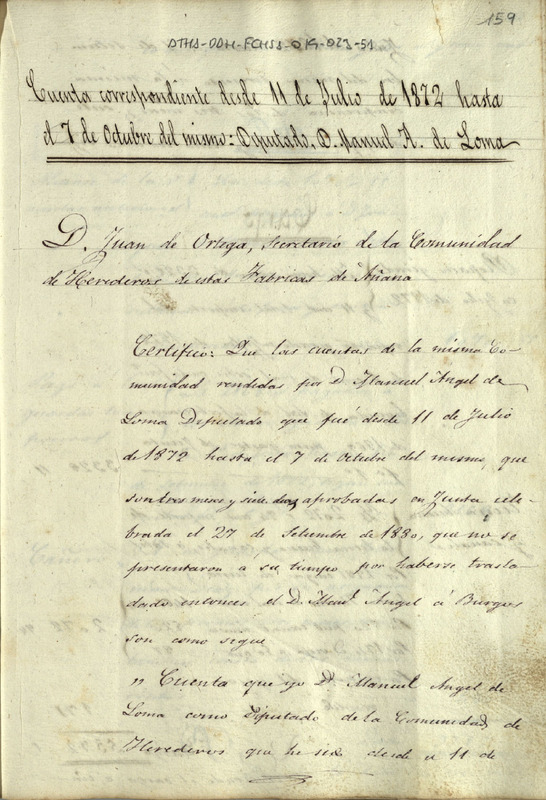 159
DTHA-DDH-FCHSS-019-023-51
Cuenta correspondiente desde 11 de Julio de 1872 hasta
el 7 de Octubre del mismo: Diputado, D. Manuel A. de Loma
D. Juan de Ortega, Secretario de la Comunidad
de Herederos de estas Fabricas de Añana
Certifico: Que las cuentas de la misma Co-
munidad rendidas por D. Manuel Angel de
Loma Deputado que fué desde 11 de Julio
de 1872 hasta el 7 de Octubre del mismo, que
son tres meses y siete dias, aprobadas en Junta cele-
brada el 27 de Setiembre de 1880, que no se
presentaron a su tiempo por haberse trasla-
dado entonces el D. Manl. Angel á Burgos
son como sigue
" Cuenta que yo D. Manuel Angel de
Loma como Diputado de la Comunidad de
Herederos que he sido desde el 11 de